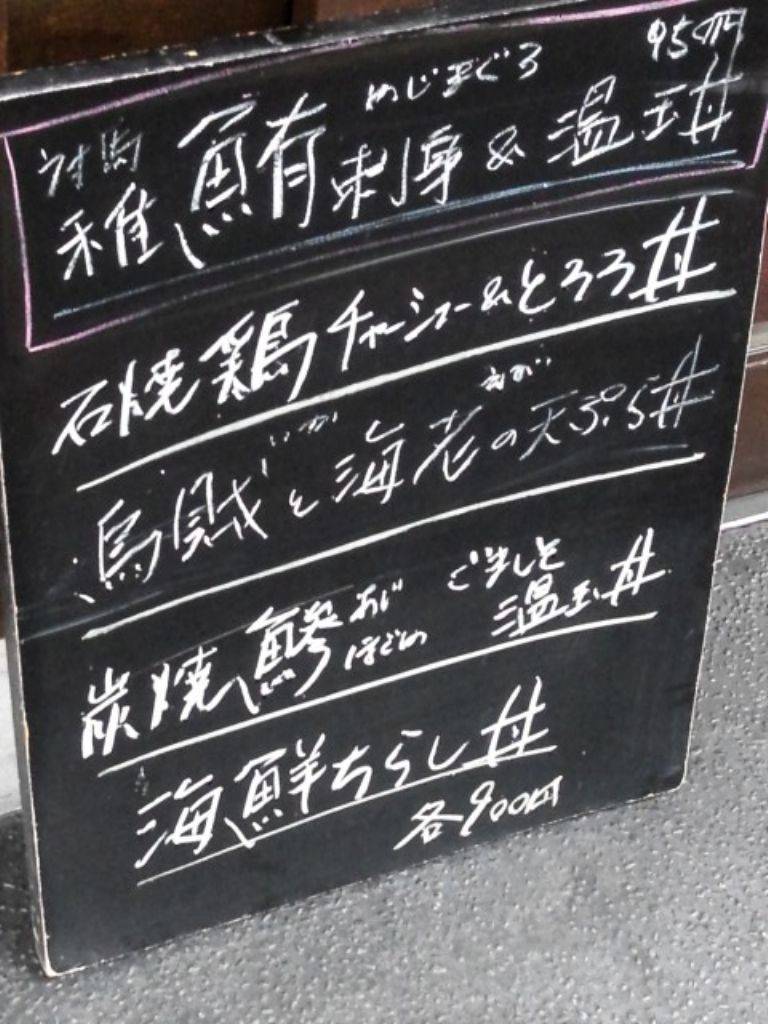 めじまぐろ 950円
対馬 稚鮪刺身&温玉丼
石焼鶏チャーシュー&とろろ丼
いか えび
烏賊と海老の天ぷら丼
炭焼鰺あじほぐめ ごましと温玉丼
海鮮ちらし丼
各900円